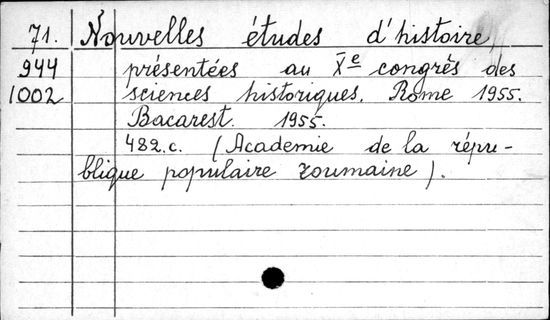 71. Nouvelles études d'histoire,
944 présentées au Xe congrès des
1002 sciences historiques. Rome 1955.
Bacarest. 1955.
482.c. (Academie de la répu-
blique populaire roumaine).